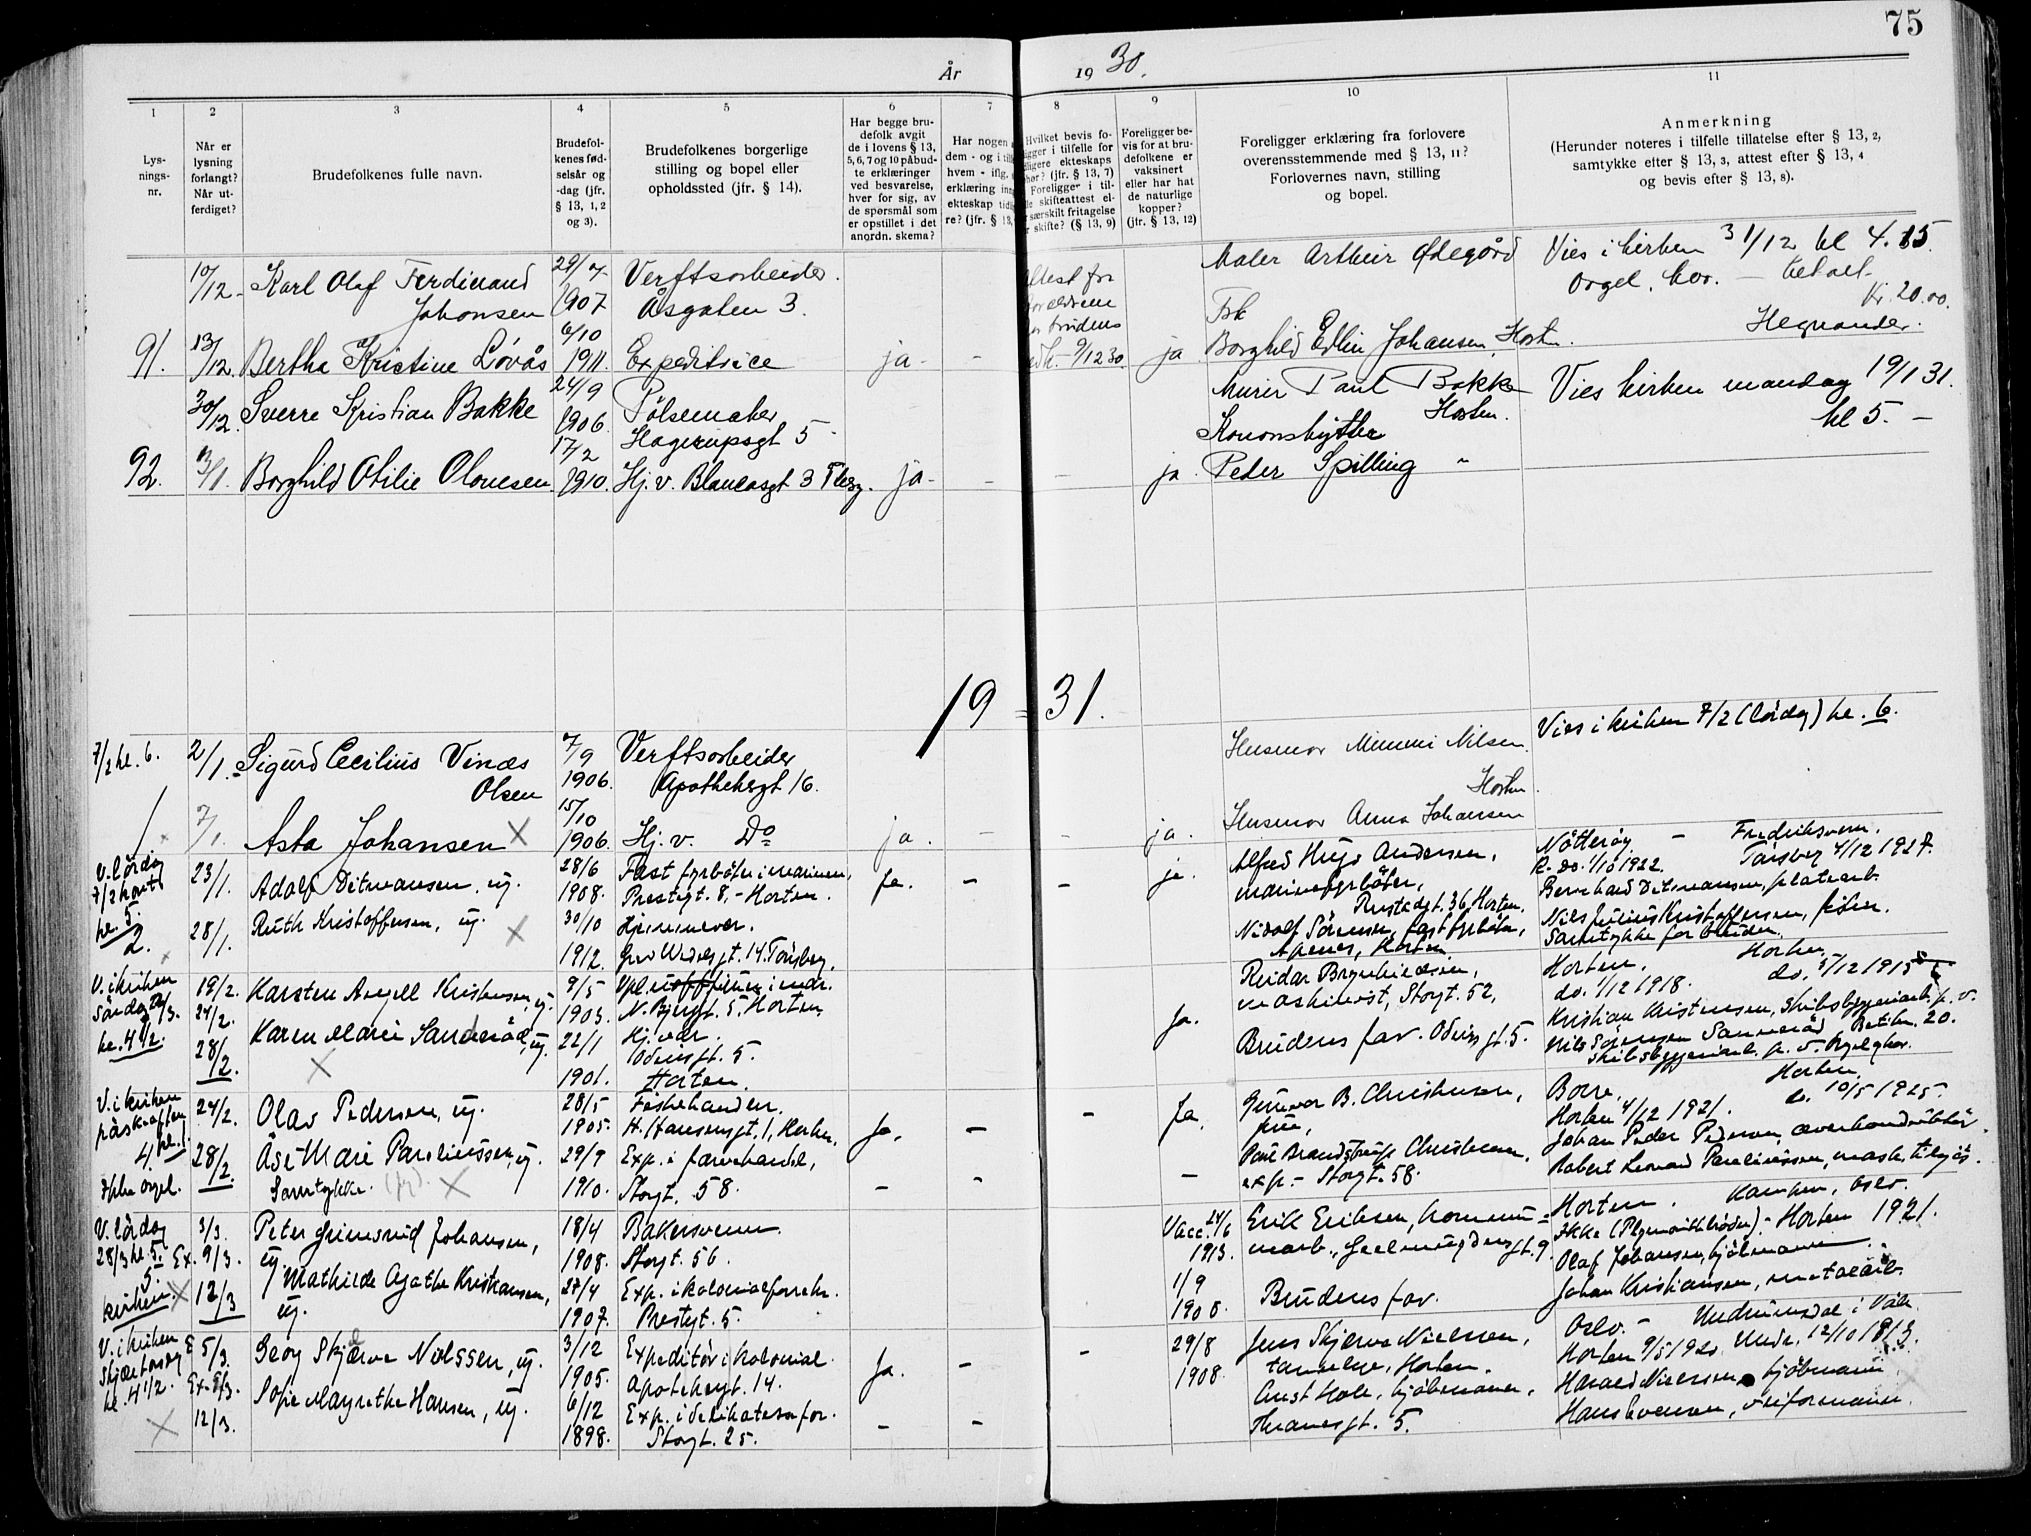 75
År 1930.
1
2
3
4
5
6
7
8
9
10
11
Lys-
nings-
nr.
Når er
lysning
forlangt?
Når ut-
ferdiget?
Brudefolkenes fulle navn.
Brudefol-
kenes fød-
selsår og
-dag (jfr.
§ 13, 1, 2
og 3).
Brudefolkenes borgerlige
stilling og bopel eller
opholdssted (jfr. § 14).
Har begge bru-
defolk avgit
de i lovens § 13,
5, 6, 7 og 10 påbud-
te erklæringer
ved besvarelse,
hver for sig, av
de spørsmål som
er opstillet i det
anordn. skema?
Har nogen
dem - og i tilf
hvem - iflg.
erklæring inn
ekteskap tidl
re? (jfr. § 13,
Hvilket bevis fo-
ligger i tilfelle for
dligere ekteskaps
phør? (jfr. § 13, 7)
Foreligger i til-
le skifteattest el-
r særskilt fritagelse
r skifte? (§ 13, 9)
Foreligger be-
vis for at bru-
defolkene er
vaksinert
eller har hat
de naturlige
kopper?
(jfr. § 13, 12)
Foreligger erklæring fra forlovere
overensstemmende med § 13, 11?
Forlovernes navn, stilling
og bopel.
Anmerkning
(Herunder noteres i tilfelle tillatelse efter § 13, 2,
samtykke efter § 13, 3, attest efter § 13, 4
og bevis efter § 13, 8).
10/12. Karl Olaf Ferdinand
Johansen
29/7
1907
Verftsarbeider.
Åsgaten 3.
Maler Arthur Ødegård
Vies i kirken 31/12 kl 4.15.
Orgel. kor. - betalt
Kr 20.00.
91. 13/12. Bertha Kristine Løvås
6/10
1911.
Expeditrice
ja -
-
9/12 30.
ja
Borghild Edlin Johansen, Horten.
30/12. Sverre Kristian Bakke
24/9
1906
Pølsemaker
Hagerupsgt 5
Murer Paul Bakke
Horten.
Vies kirken mandag 19/1 31.
kl 5. -
92. Borghild Otilie
17/2
1910.
Hj. v. 3
ja -
-
-
ja.
Peder Spilling "
1931.
7/2 kl. 6.
2/1. Sigurd Cecilius Vinæs
Olsen
7/9
1906.
Verftsarbeider
Apothekergt 16.
Husmor Mimmi Nilsen
Horten.
Vies i kirken 7/2 (lördag) kl. 6.
1
7/1. Asta Johansen X
15/10
1906.
Hj. v. Do
ja.
-
-
ja.
Husmor Anna Johansen
V. lördag
7/2
kl. 5.
2.
23/1. Adolf Ditmansen, ug.
28/6
1908.
Fast fyrböter i marinen,
Prestegt. 8, - Horten.
Ja.
-
-
ja.
Alfred Hugo Andersen,
marinefyrböter,
Rustadgt. 36, Horten.
Nötteröy - Fredriksvern.
K. do. 1/10 1922. Tönsberg 4/12 1927.
Bernhard Ditmansen, platearb.
28/1. Ruth Kristoffersen, ug. X
30/10
1912.
Hjemmevær.
Grev Wedelsgt. 14. Tönsberg.
Nidolf Sörensen, fast fyrböter,
Apenes, Horten.
Nils Julius Kristoffersen, fisker.
Samtykke for bruden.
V. i kirken
Söndag 22/3.
kl. 4 1/2.
19/2.
24/2.
28/2.
Karsten Kristensen, ug.
9/5
1903.
N. Bjergt. 5. Horten.
Karen Marie Sanderöd, ug.
X
22/1
1901.
Hj. vær.
Odinsgt. 5.
Horten.
Ja.
Reidar Brynhildsen,
maskinist, Storgt. 52,
Brudens far. Odinsgt. 5.
Horten. Horten.
do. 1/12 1918. do.
Kristian Kristensen, skibsbyggeriarb. p. v.
Nils Sörensen Sanneröd Betalt. 20.
skibsbyggeriarb. p. v.
V. i kirken
påskeaften
kl.
4.
Ikke orgel.
24/2. Olav Pedersen, ug.
28/5
1905.
Fiskehandler.
H. Hansensgt. 1, Horten.
Ja.
-
-
Ja.
Gunvor B. Christensen,
frue,
Borre. Horten.
Horten 4/12 1921. do. 10/5 1925.
Johan Peder Pedersen,
28/2. Åse Marie Paulinussen, ug.
Samtykke. X
29/9
1910.
Exp. i farvehandel,
Storgt. 58.
-
-
-
Paul Brandstrup Christensen,
exp. - Storgt. 58.
Robert Leonard Paulinussen,
V. lördag
28/3 kl. 5.
5.
kirken. X
3/3.
Ex. 9/3.
12/3
Peter Grimsrud Johansen,
ug.
18/4
1908.
Bakersvenn.
Storgt. 56.
Vacc. 24/6
1913.
Erik Eriksen, kommu=
nearb., gt. 9.
Horten. Kampen, Oslo.
Ikke (Plymouthbröder). - Horten 1921.
Olaf Johansen, kjöbmann.
Mathilde Agathe Kristiansen,
ug.
27/4
1907.
Exp. i kolonialforretn.
Prestegt. 5.
1/9
1908.
Brudens far.
Johan Kristiansen, metalarb.
V. i kirken
Skjærtorsdag
kl. 4 1/2.
X
5/3.
12/3.
Georg Skjelve Nielssen, ug.
3/12
1905.
Expeditör i kolonial.
Apotekergt. 14.
Ja.
-
-
29/8
1908.
Jens Skjerve Nielssen,
tannlege, Horten.
Oslo. - Undrumsdal i Våle
Horten 9/5 1920. Undr. 12/10 1913.
Harald Nielssen, kjöbmann.
Sofie Margrethe Hansen, ug.
6/12
1898.
Exp. i delikatessefor.
Storgt. 25.
-
-
Aust Moe, kjöbmann,
Thranesgt. 5.
Hans Evensen,